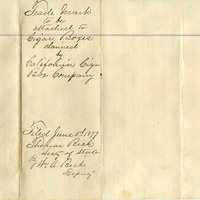 Trade Mark
to be
attached to
Cigar Boxes
claimed
by
California Cigar
Box Company
Filed June 5th 1877
Thomas Beck
Secty of State
By Wm B Beck
Deputy